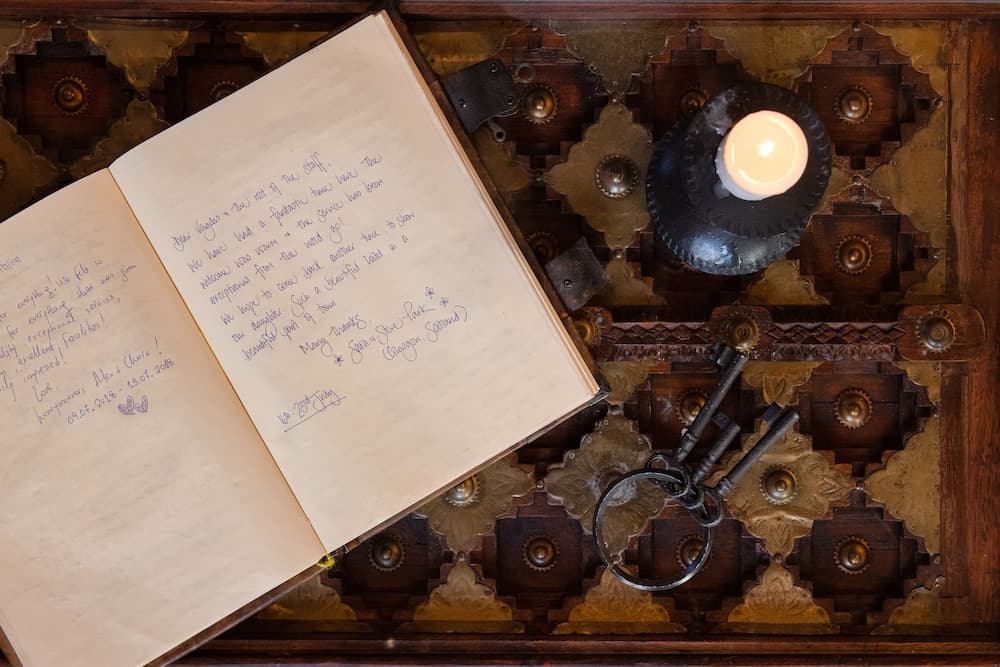 everything! We felt so
for everything that was from
exceptional service,
excellent facilities!
impressed!
Love,
honeymooners, Alex + Claire!
09.07.2018 - 13.07.2018
Dear Vangelis + the rest of the staff,
We have had a fantastic time here. The
welcome was warm + the service has been
exceptional from the word go!
We hope to come back another time to show
our daughter such a beautiful hotel in a
beautiful part of town
Many thanks,
Sara + Steve Park
(Glasgow, Scotland)
16th-23rd July